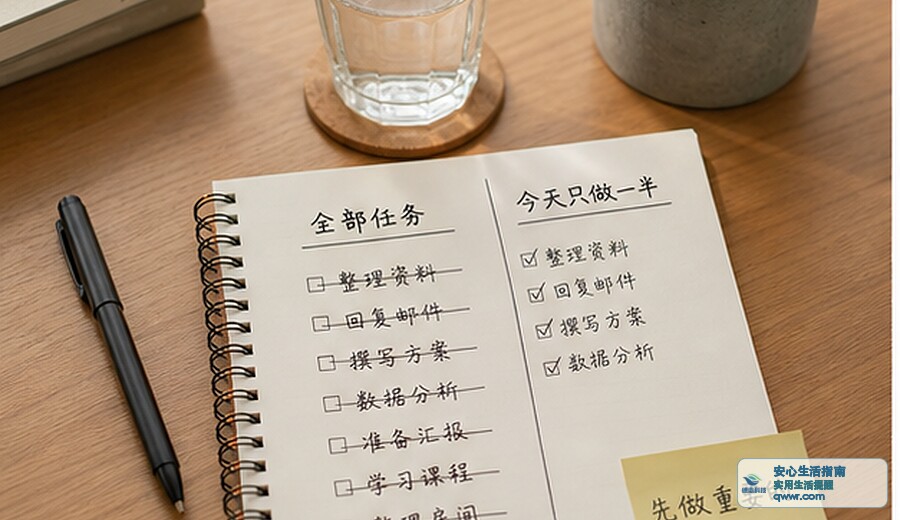 全部任务
整理资料
回复邮件
撰写方案
数据分析
准备汇报
学习课程
整理房间
今天只做一半
整理资料
回复邮件
撰写方案
数据分析
先做重要
安心生活指南
实用生活提醒
qwwr.com